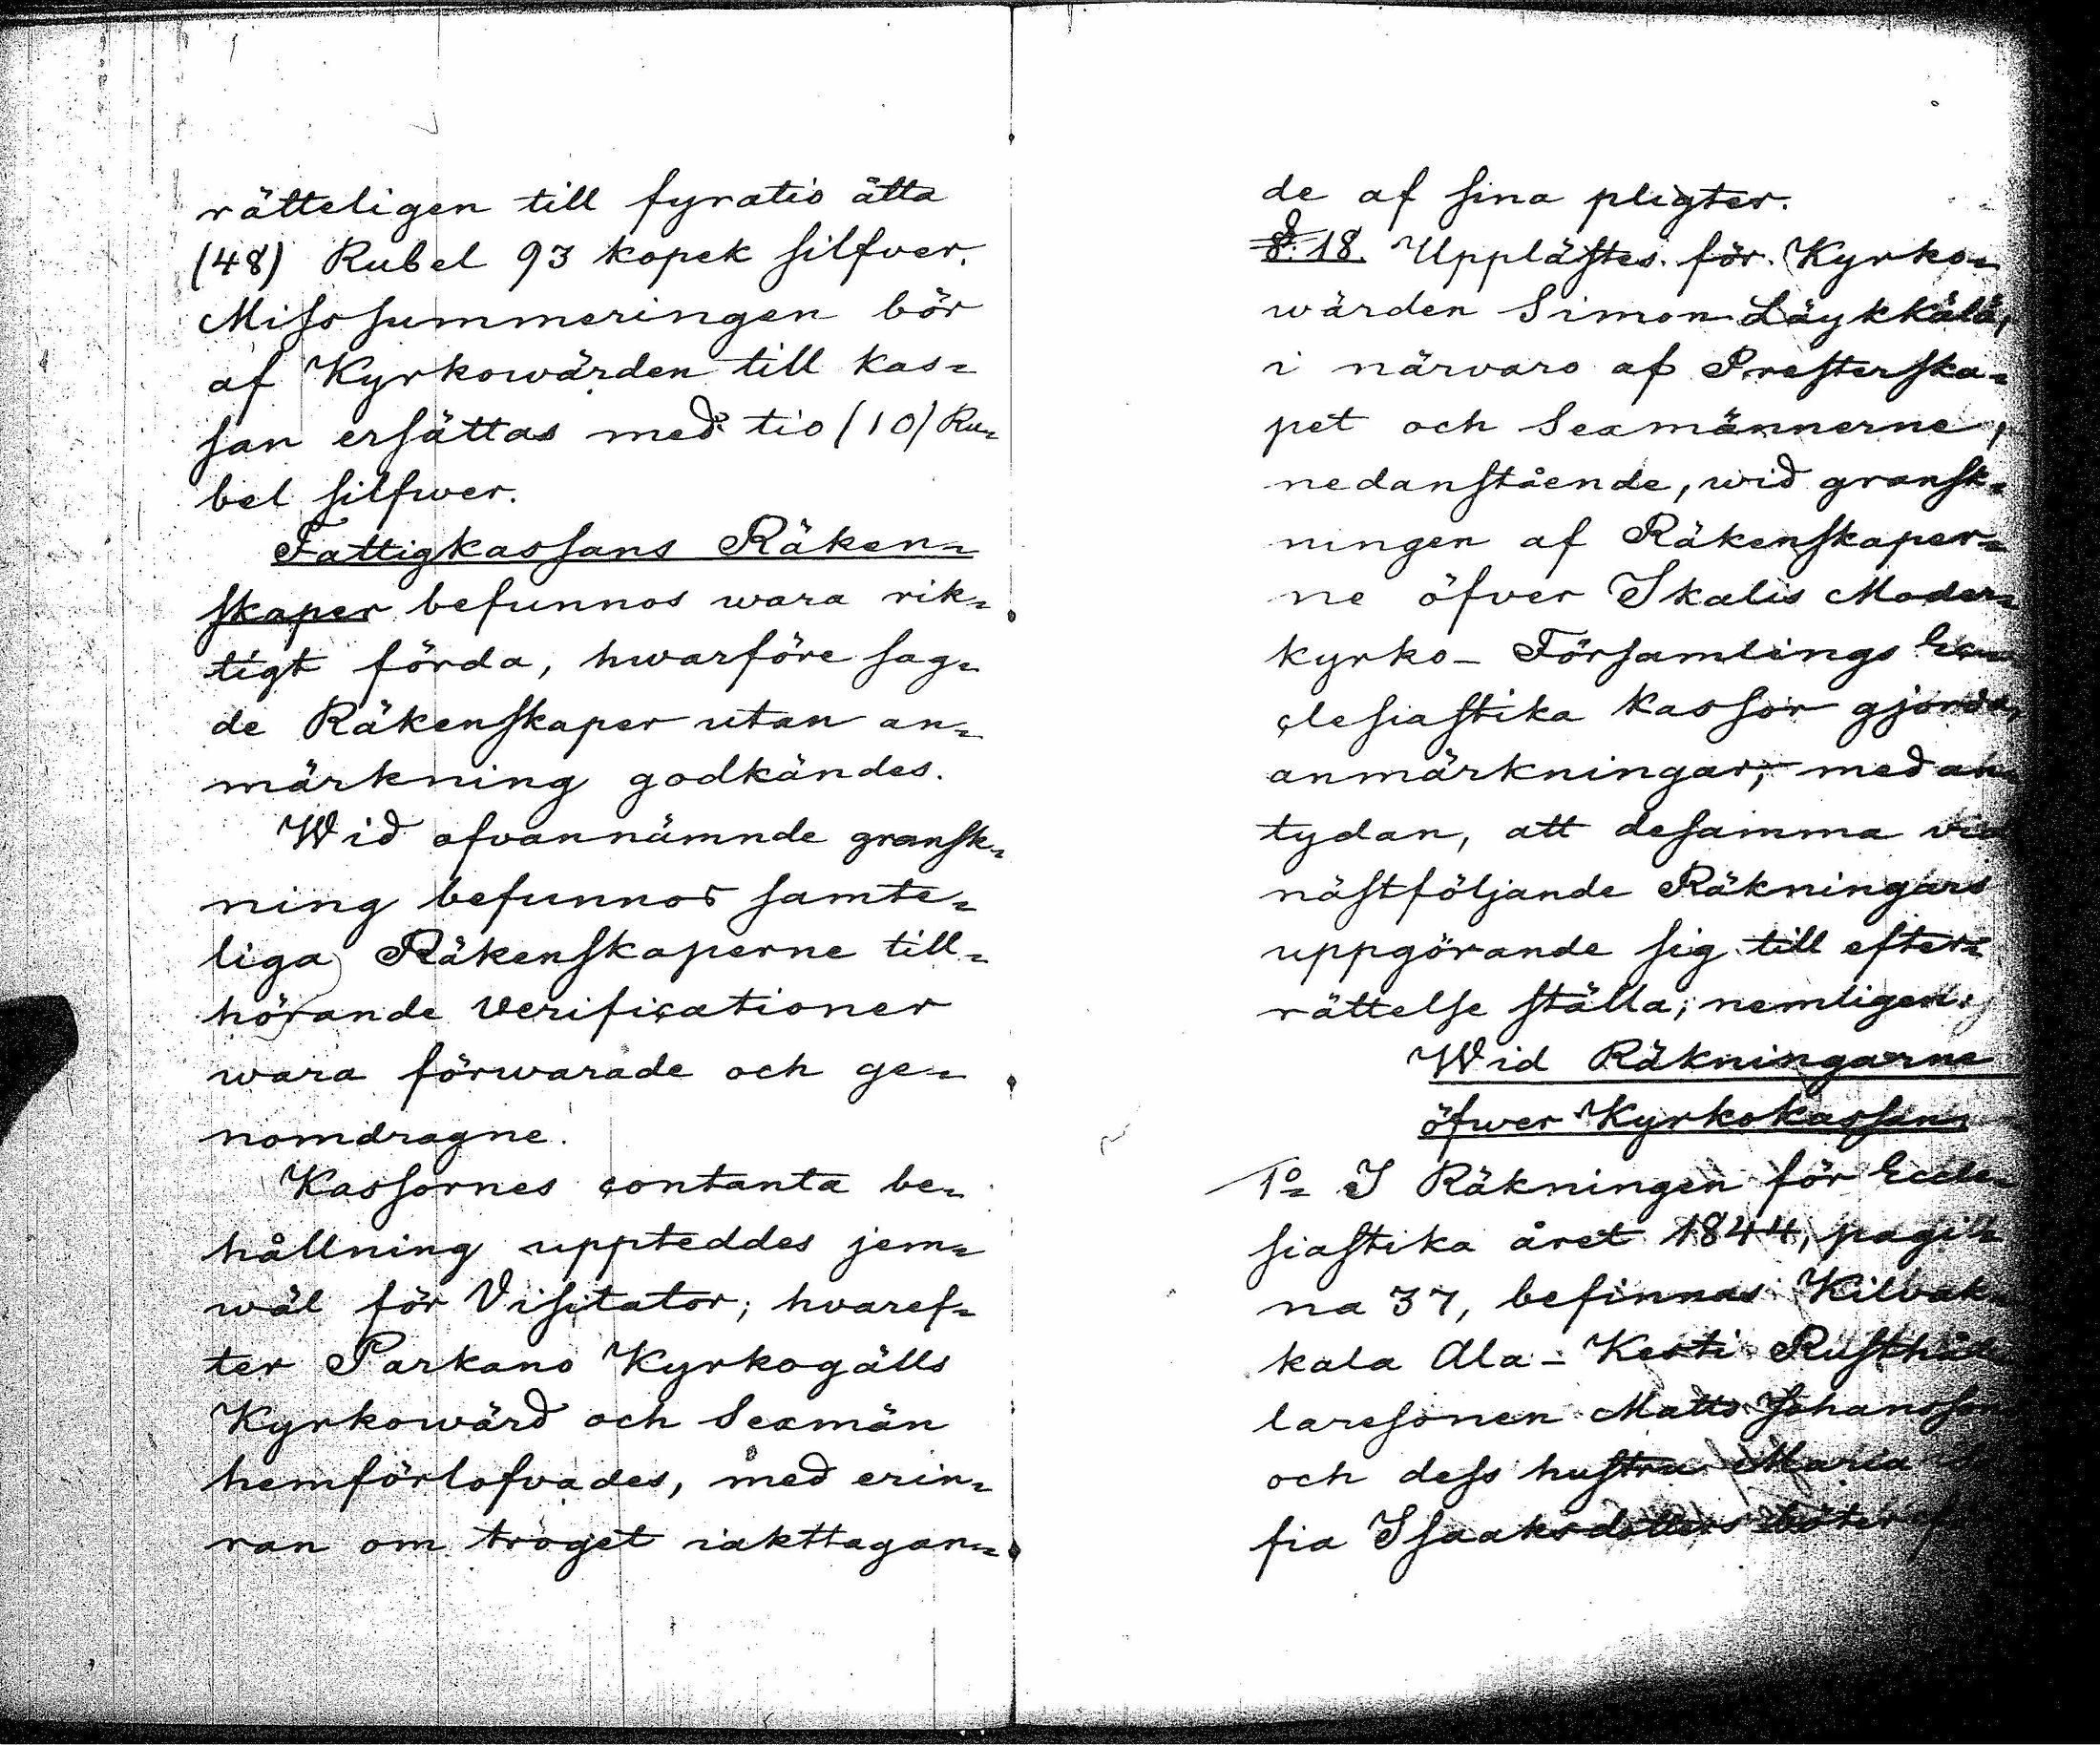 rätteligen till fyratio åtta
(48) Rubel 93 kopek silfver.
Missummeringen bör
af Kyrkowärden till kas=
san ersättas med tio (10) Ru=
bel silfwer.
Fattigkassans Räken=
skaper befunnos wara rik=
tigt förda, hwarföre sag=
de Räkenskaper utan an=
märkning godkändes.
Wid ofvannämnde gransk=
ning befunnos samte=
liga Räkenskaperne till=
hörande Verificationer
wara förwarade och ge=
nomdragne.
Kassornes contanta be=
hållning uppteddes jem=
wäl för Visitator; hvaref=
ter Parkano Kyrkogälls
Kyrkowärd och Sexmän
hemförlofvades, med erin=
ran om troget iakttagan=
de af sina pligter.
§. 18. Upplästes för Kyrko=
wärden Simon Läykkälä,
i närvaro af Presterska=
pet och Sexmännerne,
nedanstående, wid gransk=
ningen af Räkenskaper=
ne öfver Ikalis Moder=
kyrko- Församlings Ec=
clesiastika kassor gjorda,
anmärkningar, med an=
tydan, att desamma vid
nästföljande Räkningars
uppgörande sig till efter=
rättelse ställa; nemligen:
Wid Räkningarne
öfwer Kyrkokassan.
1º= I Räkningen för Eccle=
siastika året 1844, pagi=
na 37, befinnas Kilvak=
kala Ala-Kesti Rusthål=
laresonen Matts Johansson
och dess hustru Maria
fia Isaaksdotters böter